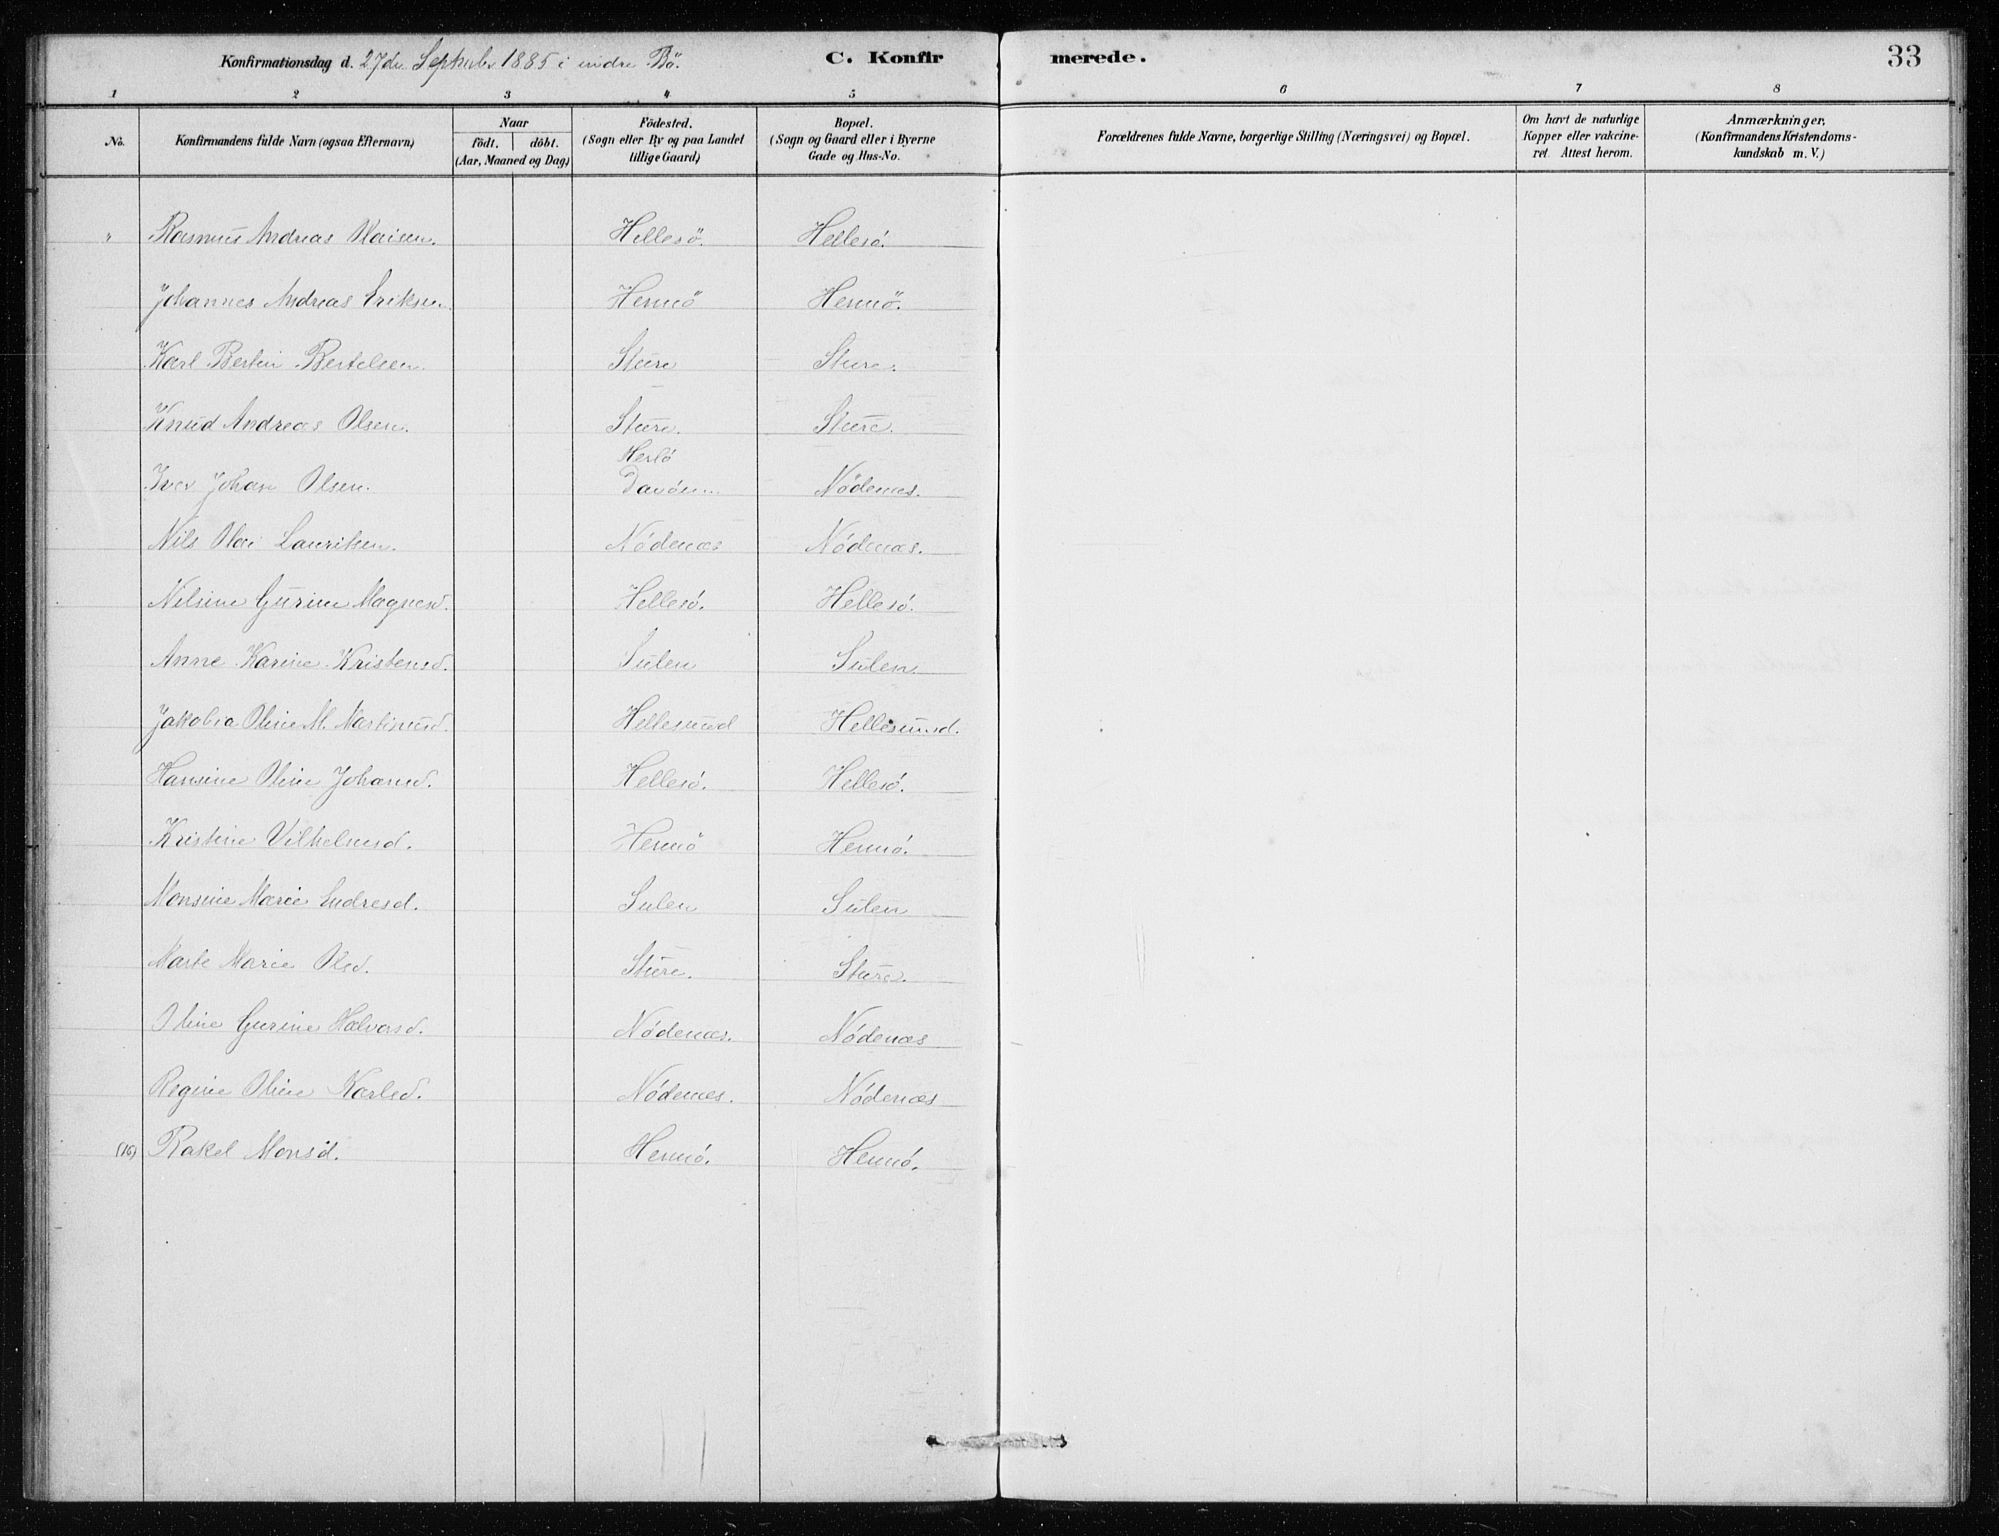 Konfirmationsdag d. 27de September 1885 i indre Bö. C. Konfirmerede. 33
1 2 3 4 5 6 7 8
No. Konfirmandens fulde Navn (ogsaa Efternavn) Naar födt. döbt. (Aar, Maaned og Dag) Födested. (Sogn eller By og paa Landet tillige Gaard) Bopæl. (Sogn og Gaard eller i Byerne Gade og Hus-No. Forældrenes fulde Navne, borgerlige Stilling (Næringsvei) og Bopæl. Om havt de naturlige Kopper eller vakcineret. Attest herom. Anmærkninger, (Konfirmandens Kristendomskundskab m. V.)
" Rasmus Andreas Olaisen. Hellesö. Hellesö.
Johannes Andreas Eriksen. Hernö Hernö.
Karl Bertin Bertelsen. Sture Sture.
Knud Andreas Olsen. Sture. Sture.
Herlö
Iver Johan Olsen. Davöen. Nödenæs.
Nils Olai Lauritsen. Nödenæs Nödenæs.
Nilsine Gurine Magnesd. Hellesö. Hellesö.
Anne Karine Kristensd. Sulen Sulen
Jakobia Oline M. Martinusd. Hellesund Hellesund.
Hansine Oline Johansd. Hellesö. Hellesö.
Kristine Vilhelmsd. Hernö Hernö.
Monsine Marie Endresd. Sulen Sulen
Marte Marie Olsd. Sture. Sture.
Oline Gurine Halvorsd. Nödenæs. Nödenæs
Regine Oline Karlsd. Nödenæs. Nödenæs
(16) Rakel Monsd. Hernö. Hernö.